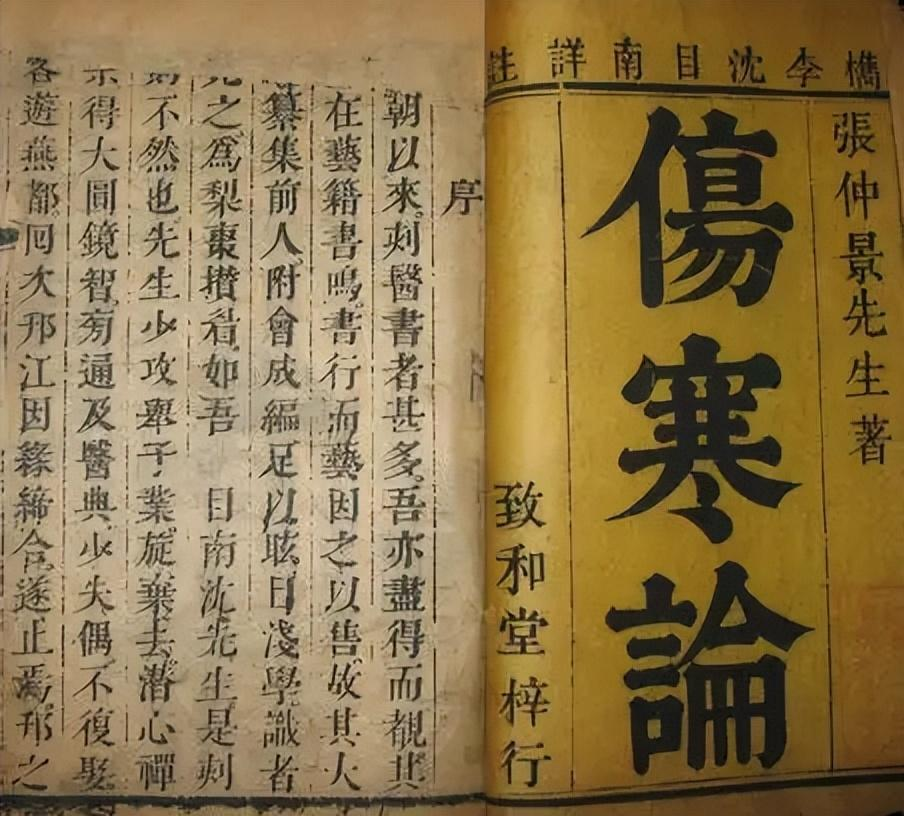 檇李沈目南詳註
張仲景先生著
傷寒論
致和堂梓行
序
朝以來刻醫書者甚多吾亦盡得而觀其
在藝籍書鳴書行而藝因之以售故其大
纂集前人附會成編足以眩目淺學識者
之爲梨棗攢眉如吾 目南沈先生是刻
不然也先生少攻舉子業旋棄去潛心禪
得大圓鏡智旁通及醫典少失偶不復娶
客遊燕都回次邗江因緣締合遂止焉邗之